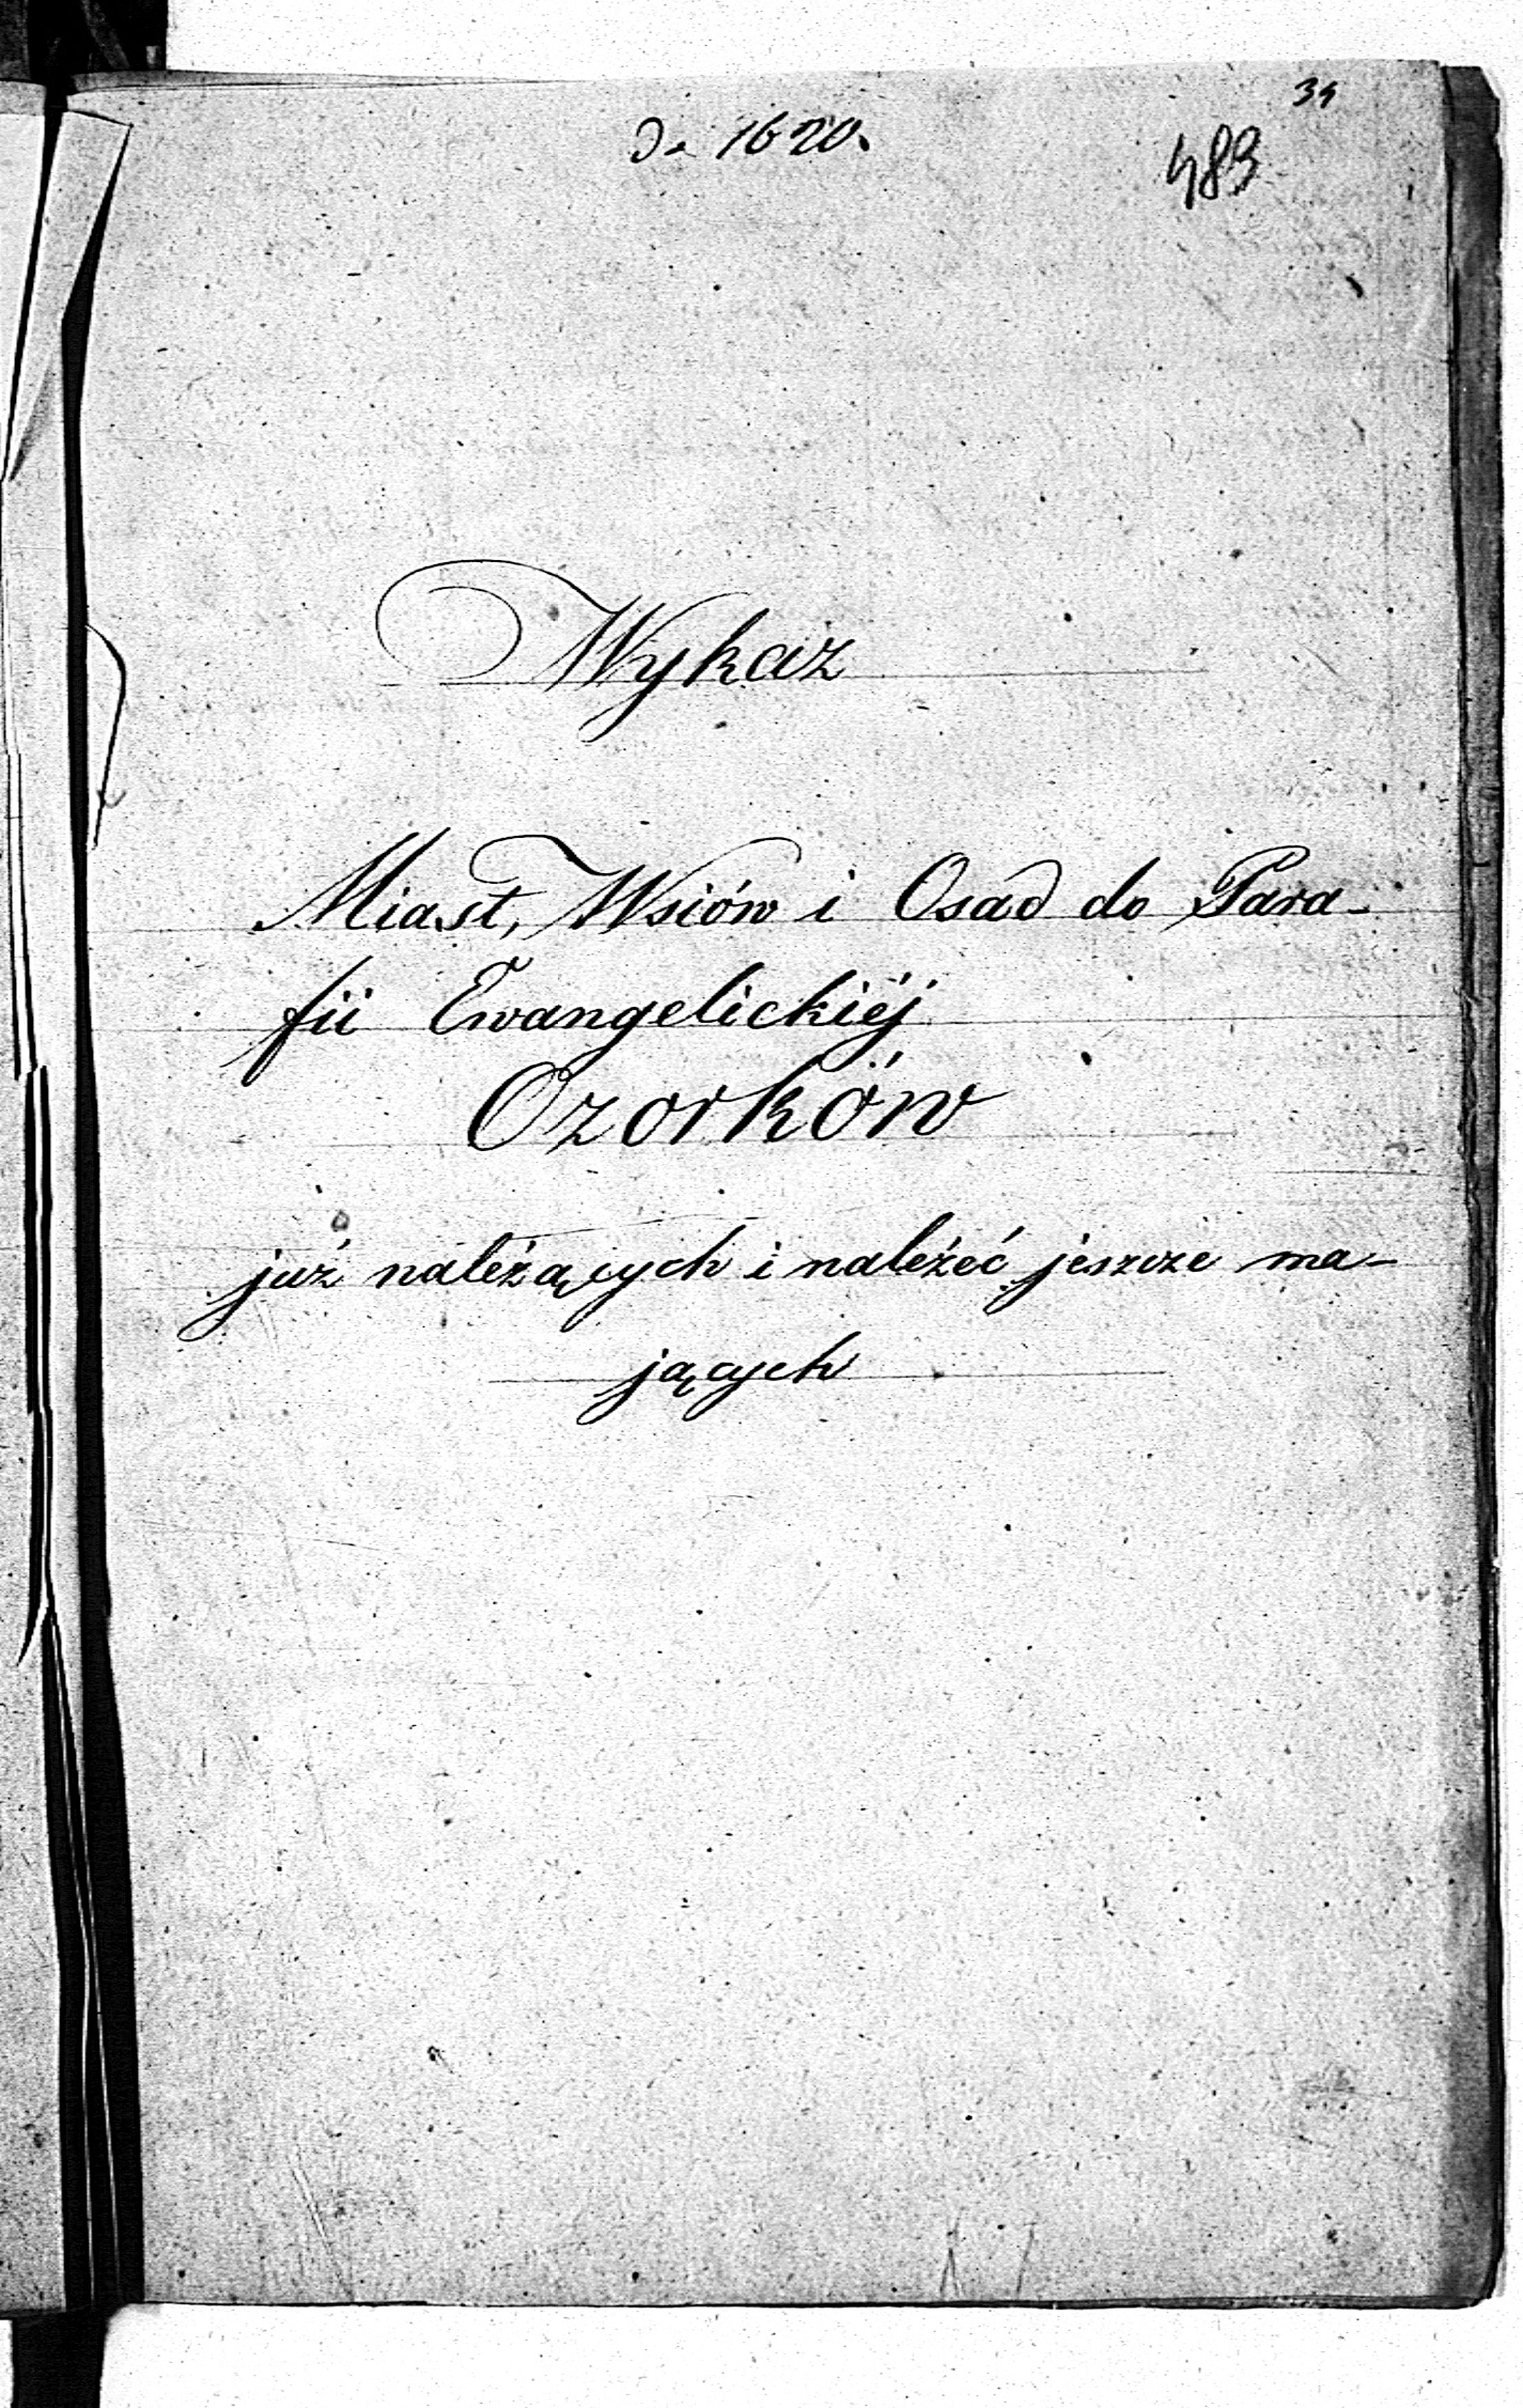 34
483
D. 1620.
Wykaz
Miast, Wsiów i Osad do Para-
fii Ewangelickiéj
Ozorków
już należących i należeć jeszcze ma-
jących